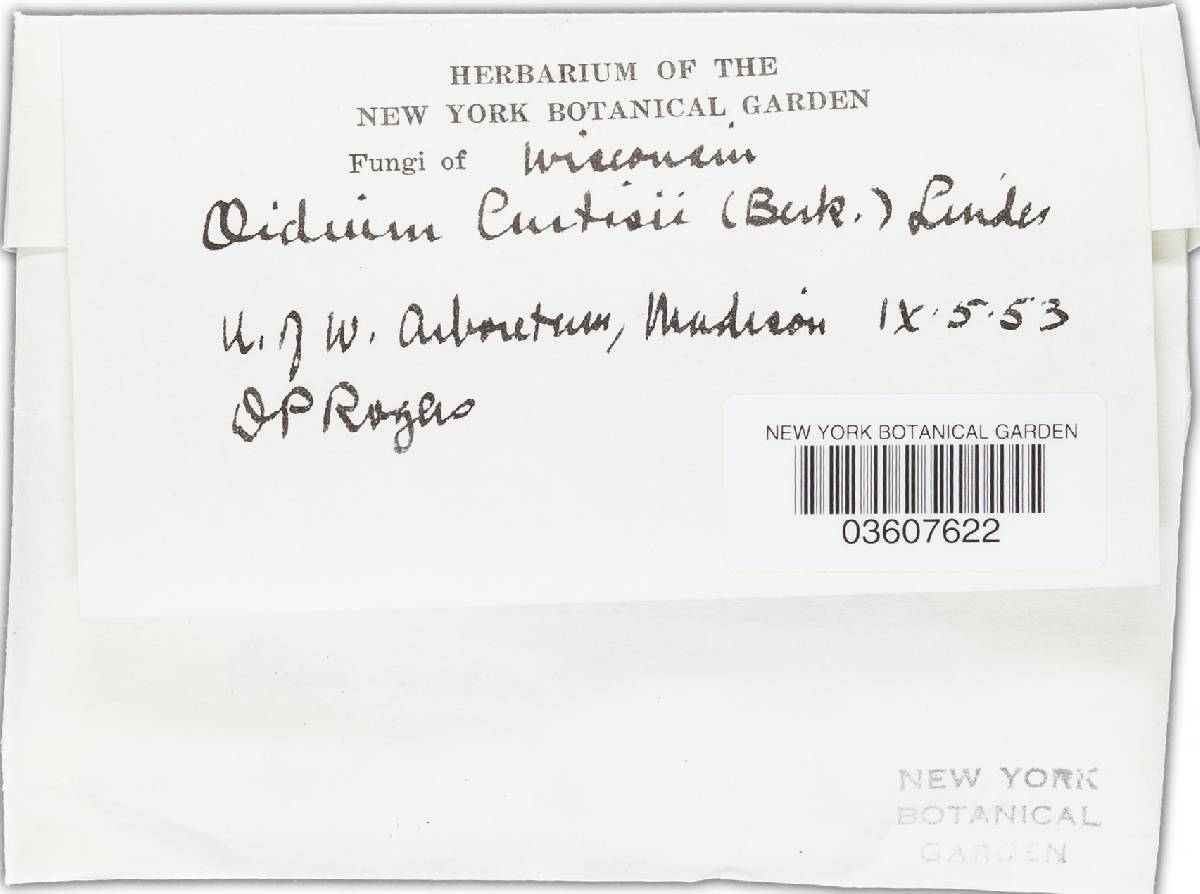 HERBARIUM OF THE
NEW YORK BOTANICAL GARDEN
Fungi of Wisconsin
Oidium Curtisii (Berk.) Linder
U. of W. Arboretum, Madison IX·5·53
DP Rogers
NEW YORK BOTANICAL GARDEN
03607622
NEW YORK
BOTANICAL
GARDEN